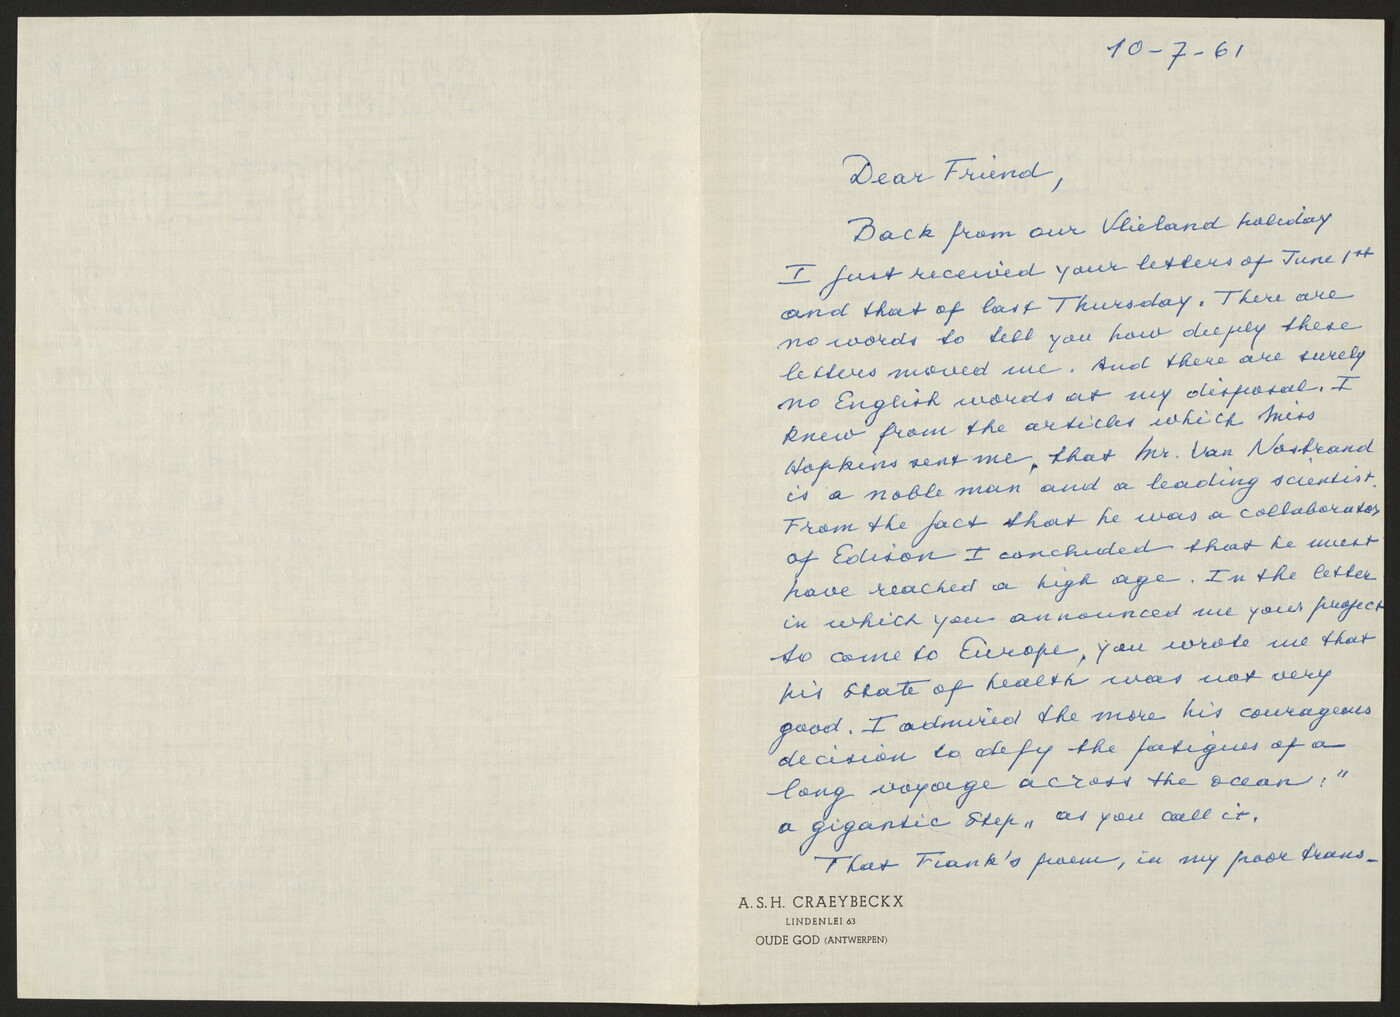 10-7-61
Dear Friend,
Back from our Vlieland holiday
I just received your letters of June 1st
and that of last Thursday. There are
no words to tell you how deeply these
letters moved me. And there are surely
no English words at my disposal. I
knew from the articles which Miss
Hopkins sent me, that Mr. Van Nostrand
is a noble man and a leading scientist.
From the fact that he was a collaborator
of Edison I concluded that he must
have reached a high age. In the letter
in which you announced me your project
to come to Europe, you wrote me that
his state of health was not very
good. I admired the more his courageous
decision to defy the fatigues of a
long voyage across the ocean: "
a gigantic step„ as you call it.
That Frank's poem, in my poor trans-
A.S.H. CRAEYBECKX
LINDENLEI 63
OUDE GOD (ANTWERPEN)